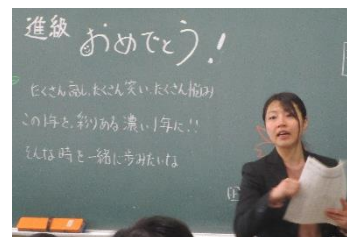 進級 おめでとう!
たくさん話し、たくさん笑い、たくさん悩み
この1年を、彩りある濃い1年に!!
そんな時を一緒に歩みたいな